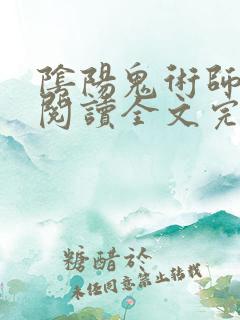 陰陽鬼術師
閱讀全文完
糖醋於
未經同意禁止轉載